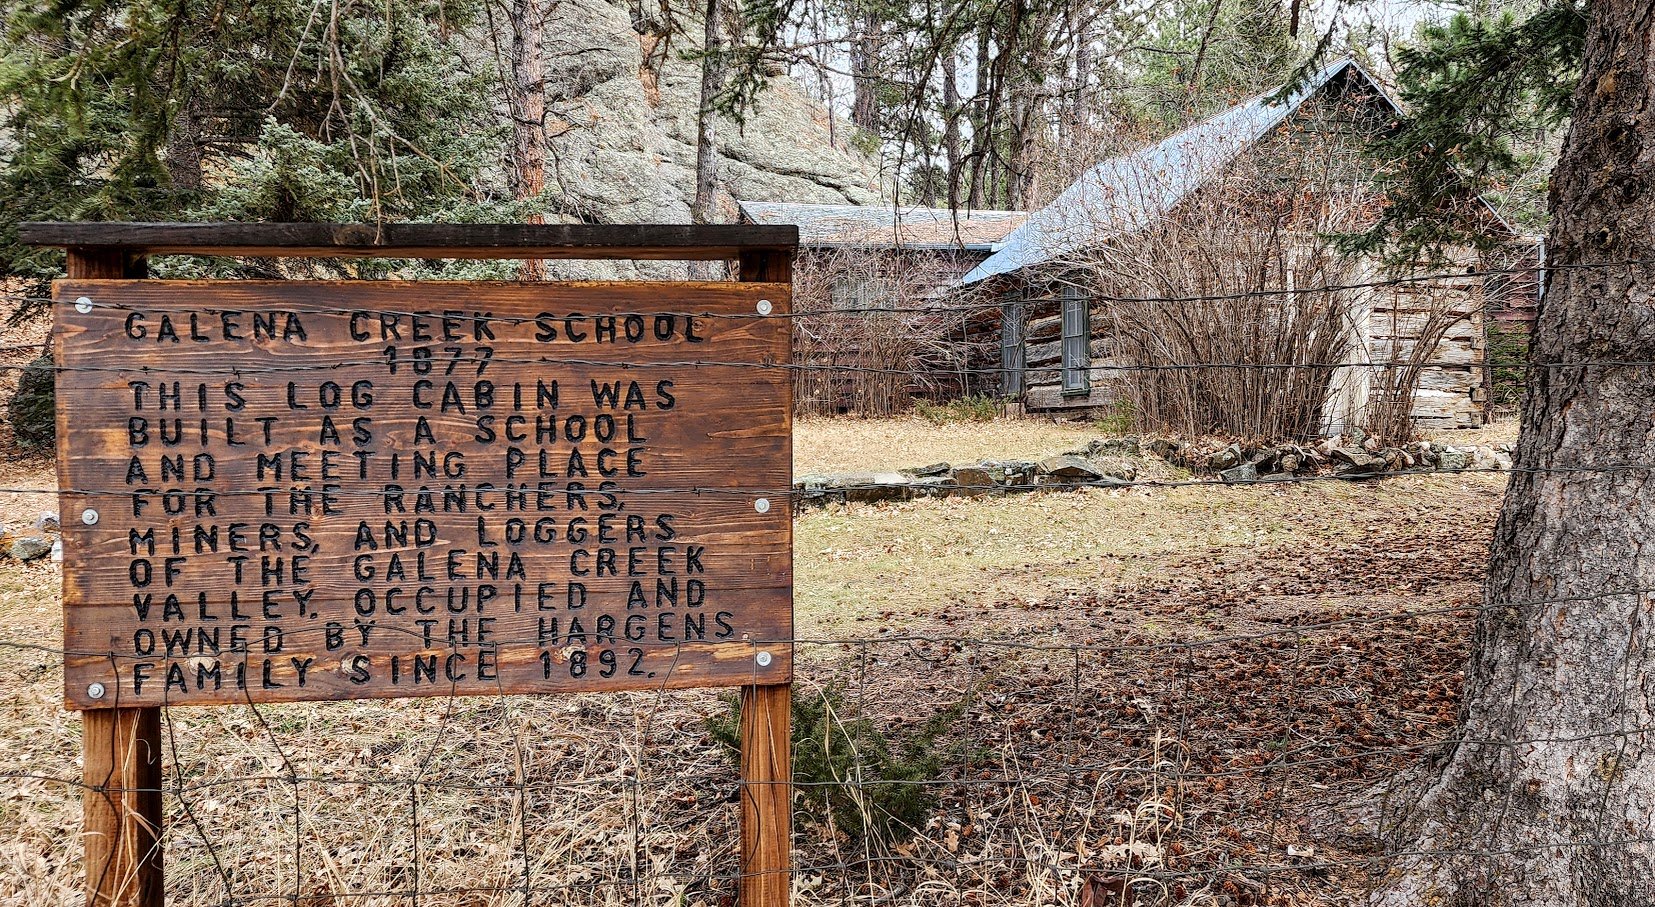 GALENA CREEK SCHOOL
1877
THIS LOG CABIN WAS
BUILT AS A SCHOOL
AND MEETING PLACE
FOR THE RANCHERS,
MINERS, AND LOGGERS
OF THE GALENA CREEK
VALLEY. OCCUPIED AND
OWNED BY THE HARGENS
FAMILY SINCE 1892.